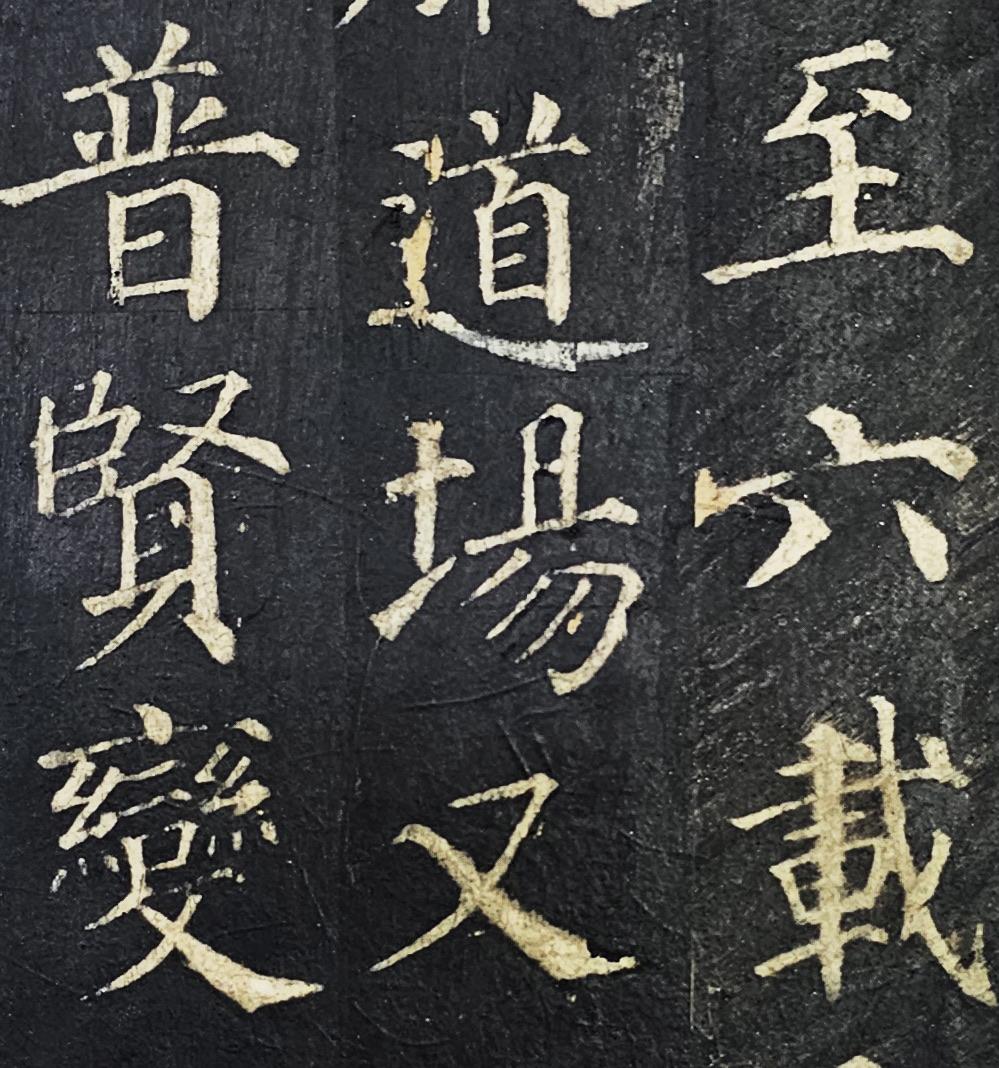 至六載
道場又
普賢變